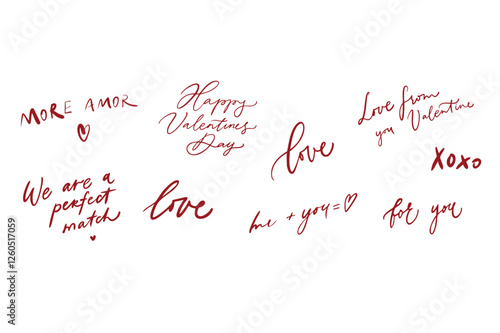 MORE AMOR
Happy
Valentines
Day
love
Love from
you Valentine
XOXO
We are a
perfect
match
love
me + you =
for you
Adobe Stock | #1260517059